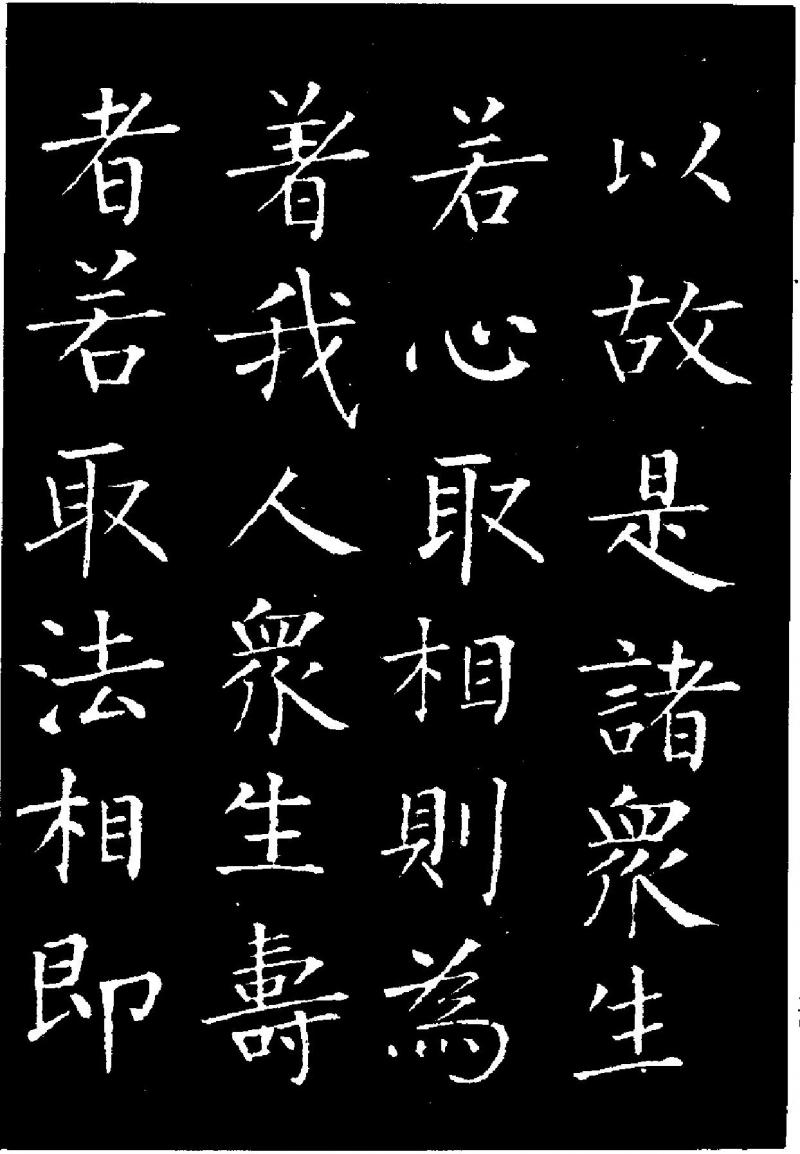 以故是諸衆生
若心取相則為
著我人衆生壽
者若取法相即